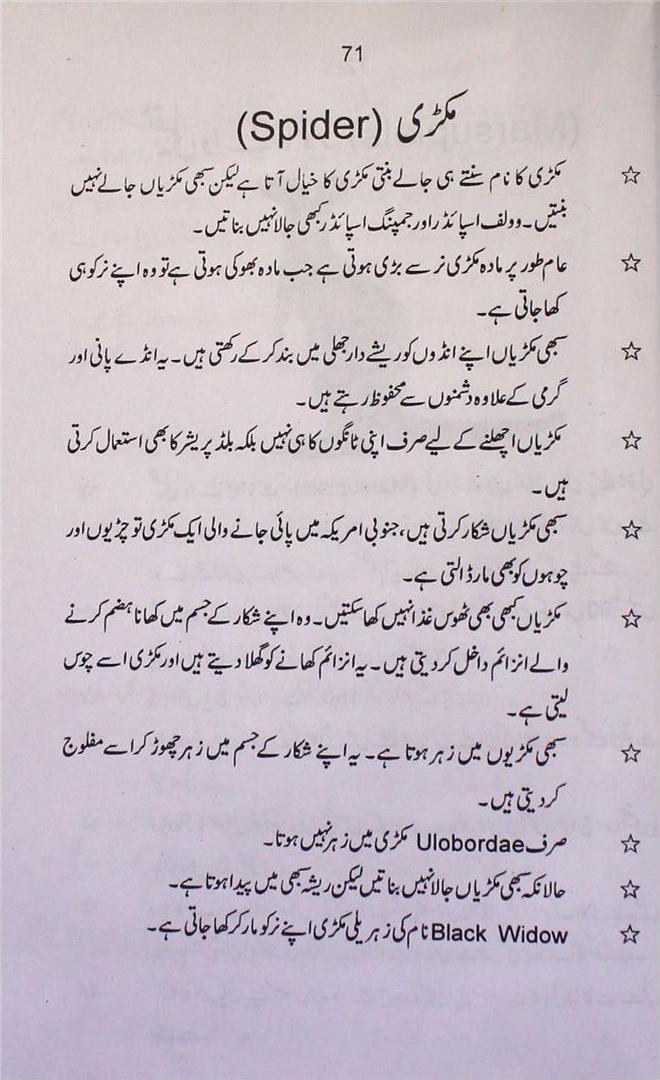 71
مکڑی (Spider)
☆ مکڑی کا نام سنتے ہی جالے بنتی مکڑی کا خیال آتا ہے لیکن سبھی مکڑیاں جالے نہیں
بنتیں۔ وولف اسپائڈر اور جمپنگ اسپائڈر کبھی جالا نہیں بناتیں۔
☆ عام طور پر مادہ مکڑی نر سے بڑی ہوتی ہے جب مادہ بھوکی ہوتی ہے تو وہ اپنے نر کو ہی
کھا جاتی ہے۔
☆ سبھی مکڑیاں اپنے انڈوں کو ریشے دار جھلی میں بند کر کے رکھتی ہیں۔ یہ انڈے پانی اور
گرمی کے علاوہ دشمنوں سے محفوظ رہتے ہیں۔
☆ مکڑیاں اچھلنے کے لیے صرف اپنی ٹانگوں کا ہی نہیں بلکہ بلڈ پریشر کا بھی استعمال کرتی
ہیں۔
☆ سبھی مکڑیاں شکار کرتی ہیں، جنوبی امریکہ میں پائی جانے والی ایک مکڑی تو چڑیوں اور
چوہوں کو بھی مار ڈالتی ہے۔
☆ مکڑیاں کبھی بھی ٹھوس غذا نہیں کھا سکتیں۔ وہ اپنے شکار کے جسم میں کھانا ہضم کرنے
والے انزائم داخل کر دیتی ہیں۔ یہ انزائم کھانے کو گھلا دیتے ہیں اور مکڑی اسے چوس
لیتی ہے۔
☆ سبھی مکڑیوں میں زہر ہوتا ہے۔ یہ اپنے شکار کے جسم میں زہر چھوڑ کر اسے مفلوج
کر دیتی ہیں۔
☆ صرف Ulobordae مکڑی میں زہر نہیں ہوتا۔
☆ حالانکہ سبھی مکڑیاں جالا نہیں بناتیں لیکن ریشہ سبھی میں پیدا ہوتا ہے۔
☆ Black Widow نام کی زہریلی مکڑی اپنے نر کو مار کر کھا جاتی ہے۔